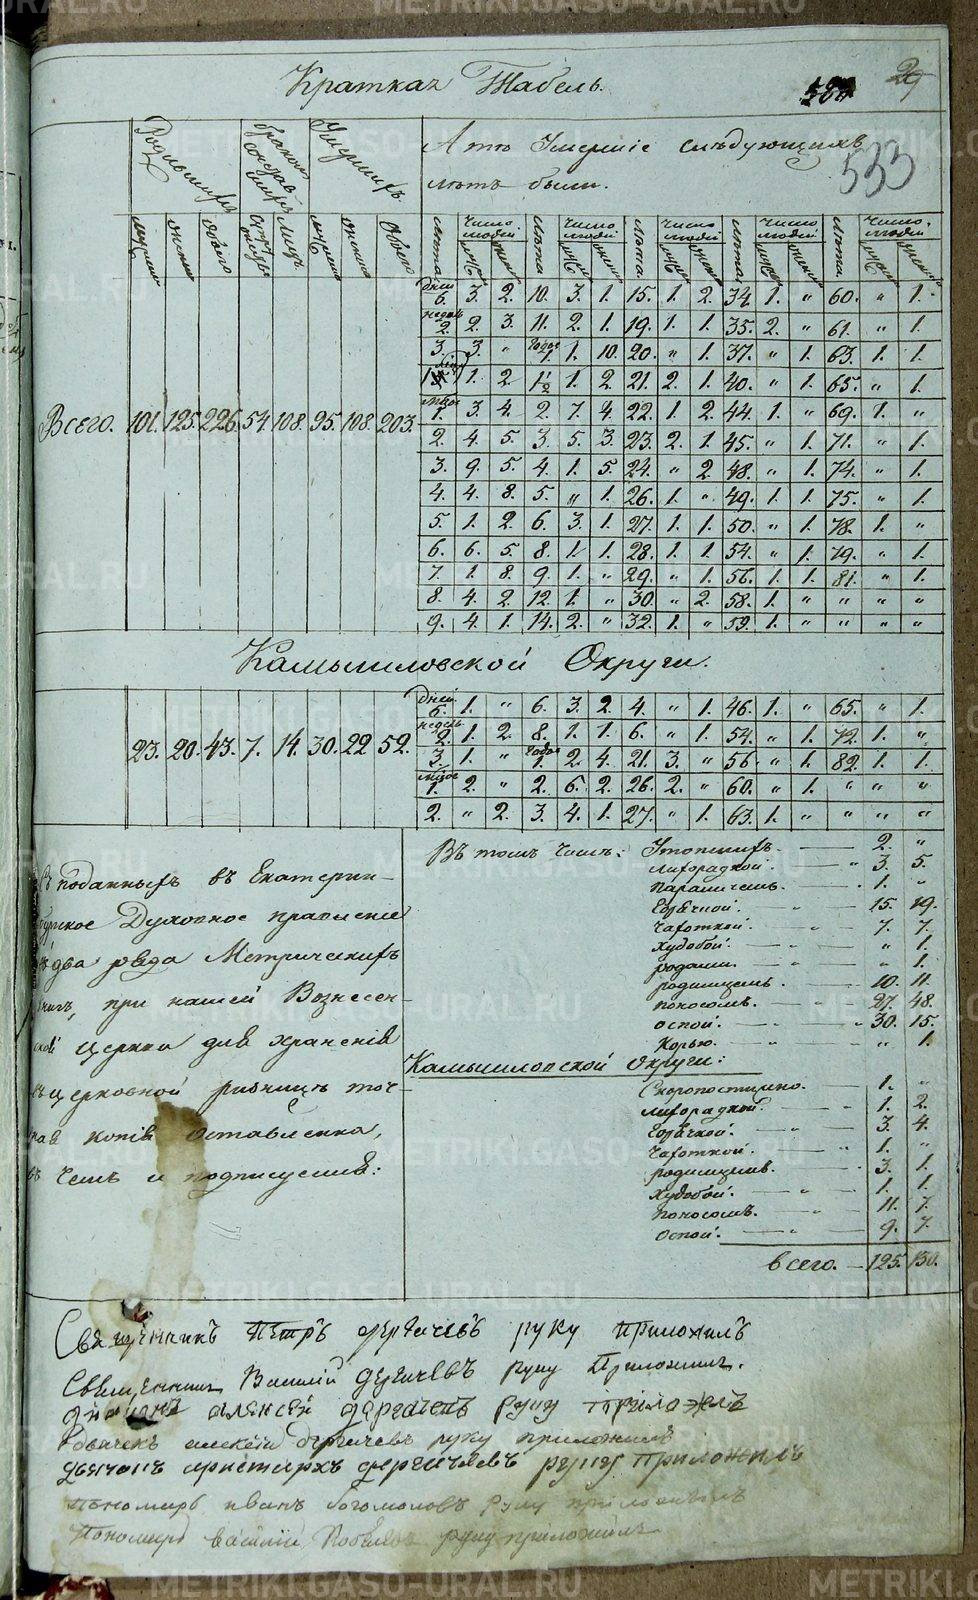 Краткая Табель.
29
533
Родившихся
браком сочетавшихся
Умершихъ
А то Умершіе слѣдующихъ
лѣтъ были.
мужеска женска обоего супружествъ лицъ мужеска женска Обоего
лѣта число людей муж женск лѣта число людей муж женск лѣта число людей муж женск лѣта число людей муж женск лѣта число людей муж женск
дней 6. 3. 2. 10. 3. 1. 15. 1. 2. 34. 1. " 60. " 1.
недель 2. 2. 3. 11. 2. 1. 19. 1. 1. 35. 2. " 61. " 1.
3. 3. " Годов 1. 1. 10. 20. " 1. 37. " 1. 63. 1. 1.
1. 2 1½ 1. 2. 21. 2. 1. 40. " 1. 65. " 1.
Всего. 101. 125. 226. 54. 108. 95. 108. 203.
1. 3. 4. 2. 7. 4. 22. 1. 2. 44. 1. " 69. 1. "
2. 4. 5. 3. 5. 3. 23. 2. 1. 45. " 1. 71. " 1.
3. 9. 5. 4. 1. 5. 24. " 2. 48. " 1. 74. " 1.
4. 4. 8. 5. " 1. 26. 1. " 49. 1. 1. 75. " 1.
5. 1. 2. 6. 3. 1. 27. 1. 1. 50. " 1. 78. 1. "
6. 6. 5. 8. 1. 1. 28. 1. 1. 54. " 1. 79. " 1.
7. 1. 8. 9. 1. " 29. " 1. 56. 1. 1. 81. " 1.
8. 4. 2. 12. 1. " 30. " 2. 58. 1. " " " "
9. 4. 1. 14. 2. " 32. 1. " 59. 1. " " " "
Камышловской Округи.
дней 6. 1. " 6. 3. 2. 4. " 1. 46. 1. " 65. " 1.
недель 2. 1. 2. 8. 1. 1. 6. " 1. 54. " 1. 72. 1. "
23. 20. 43. 7. 14. 30. 22. 52.
3. 1. " Годов 1. 2. 4. 21. 3. " 56. " 1. 82. 1. 1.
1. 2. " 2. 6. 2. 26. 2. " 60. " 1. " " "
2. " 2. 3. 4. 1. 27. " 1. 63. 1. " " " "
Въ томъ числѣ: Утопшихъ. 2. "
лихорадкой. 3. 5.
параличемъ. 1. "
Горячкой. 15. 19.
Чахоткой. 7. 7.
худобой. " 1.
родами. " 1.
родимцемъ. 10. 11.
поносомъ. 27. 48.
оспой. 30. 15.
Корью. " 1.
Камышловской Округи:
Скоропостижно. 1. "
лихорадкой. 1. 2.
Горячкой. 3. 4.
Чахоткой. 1. "
родимцемъ. 3. 1.
худобой. 1. 1.
поносомъ. 11. 7.
оспой. 9. 7.
всего. 125. 130.
поданныхъ въ Екатерин-
бургское Духовное правленіе
два ряда Метрическихъ
книгъ, при нашей Вознесен-
ской церкви для храненія
церковной ризницѣ точ-
ная копія Оставленна,
въ чемъ и подписуемся:
Священникъ Петръ дергачевъ руку приложилъ
Священникъ Василій дергачевъ руку Приложилъ.
діаконъ алексей дергачевъ руку приложилъ
алексей дергачевъ руку приложилъ
дьячокъ аристархъ дергачевъ руку приложилъ
пономарь иванъ богомоловъ руку приложилъ
Пономарь василій руку приложилъ
METRIKI.GASO-URAL.RU